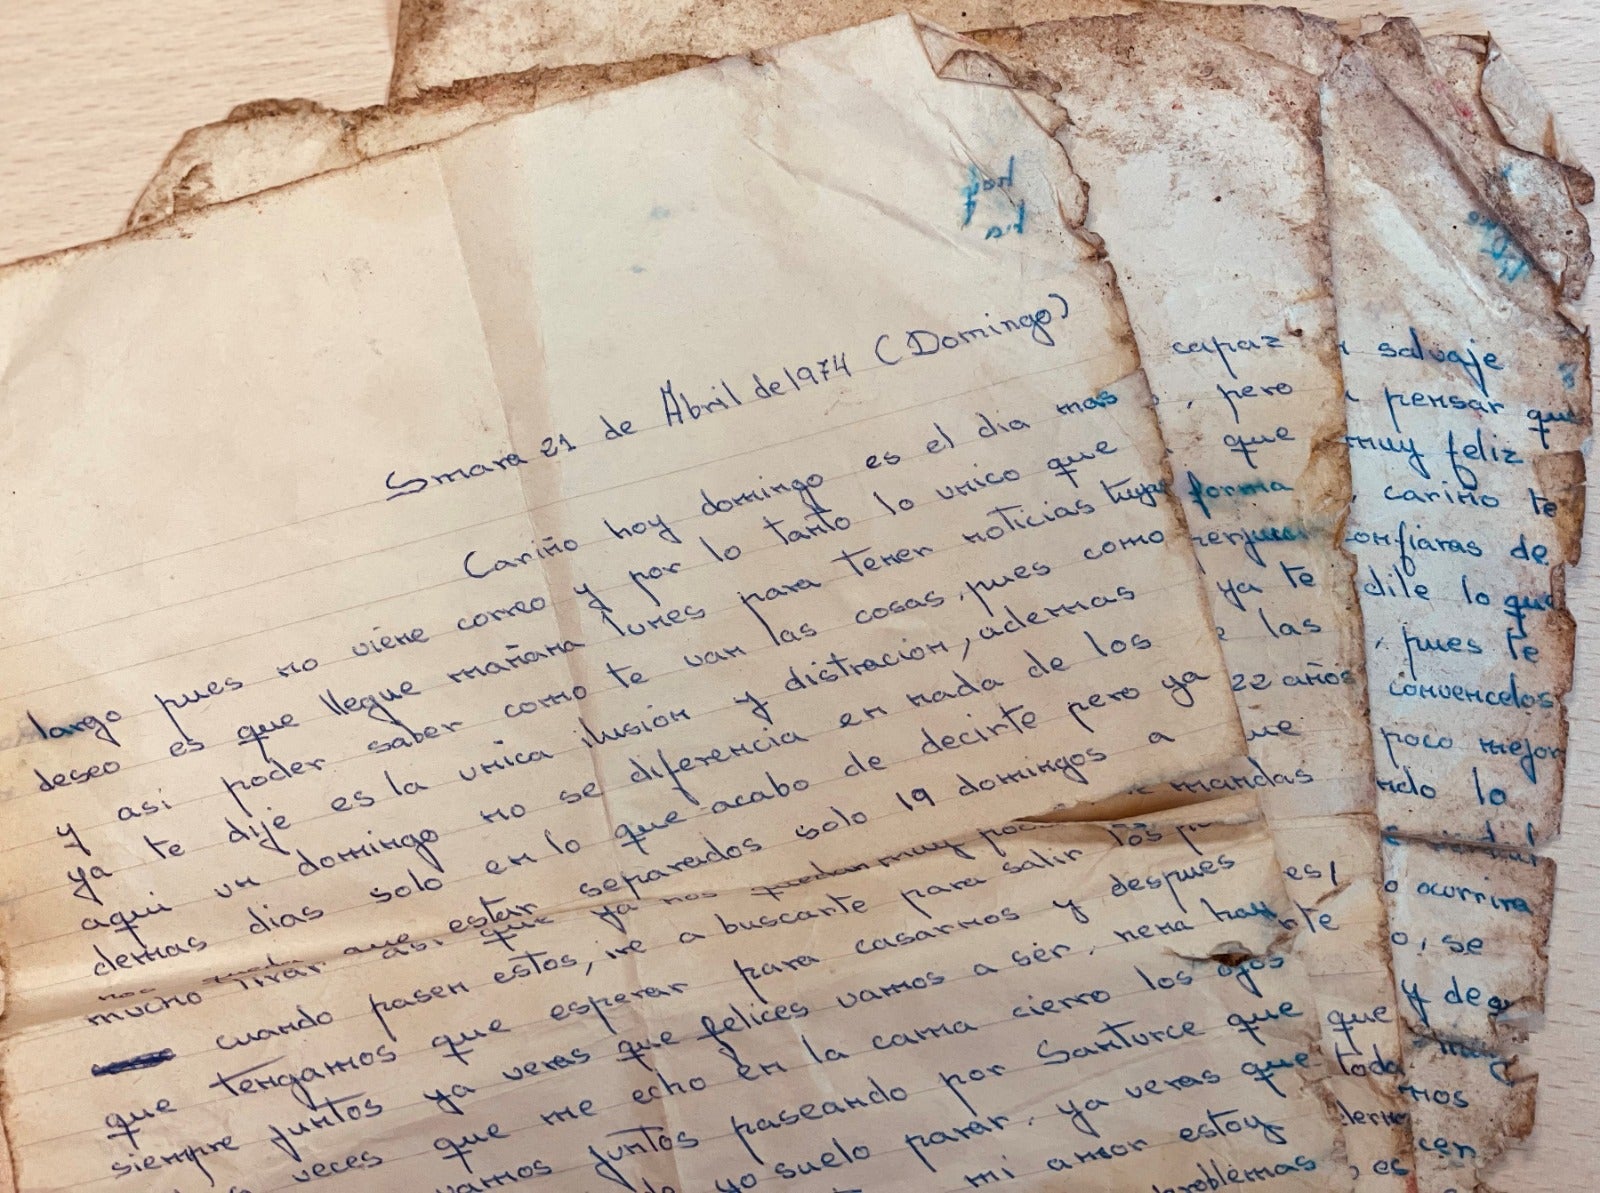 Smara 21 de Abril de 1974 (Domingo)
Cariño hoy domingo es el dia mas
largo pues no viene correo y por lo tanto lo unico que
deseo es que llegue mañana lunes para tener noticias tuyas
y asi poder saber como te van las cosas, pues como
ya te dije es la unica ilusión y distracion, ademas
aqui un domingo no se diferencia en nada de los
demas dias solo en lo que acabo de decirte pero ya
estar separados solo 19 domingos a
mucho tirar asi que ya nos quedan muy
cuando pasen estos, ire a buscarte para salir los
que tengamos que esperar para casarnos y despues
siempre juntos ya veras que felices vamos a ser, nena hay
veces que me echo en la cama cierro los ojos
vamos juntos paseando por Santurce que que
yo suelo parar, ya veras que toda
mi amor estoy
problemas, es
capaz
, pero
que
forma
ya te
las
22 años
mandas
es
salvaje
pensar que
muy feliz
, cariño te
confiaras de
dile lo que
, pues te
convencelos
poco mejor
ndo lo
o ocurrira
o, se
y de
nos
cen
hoy